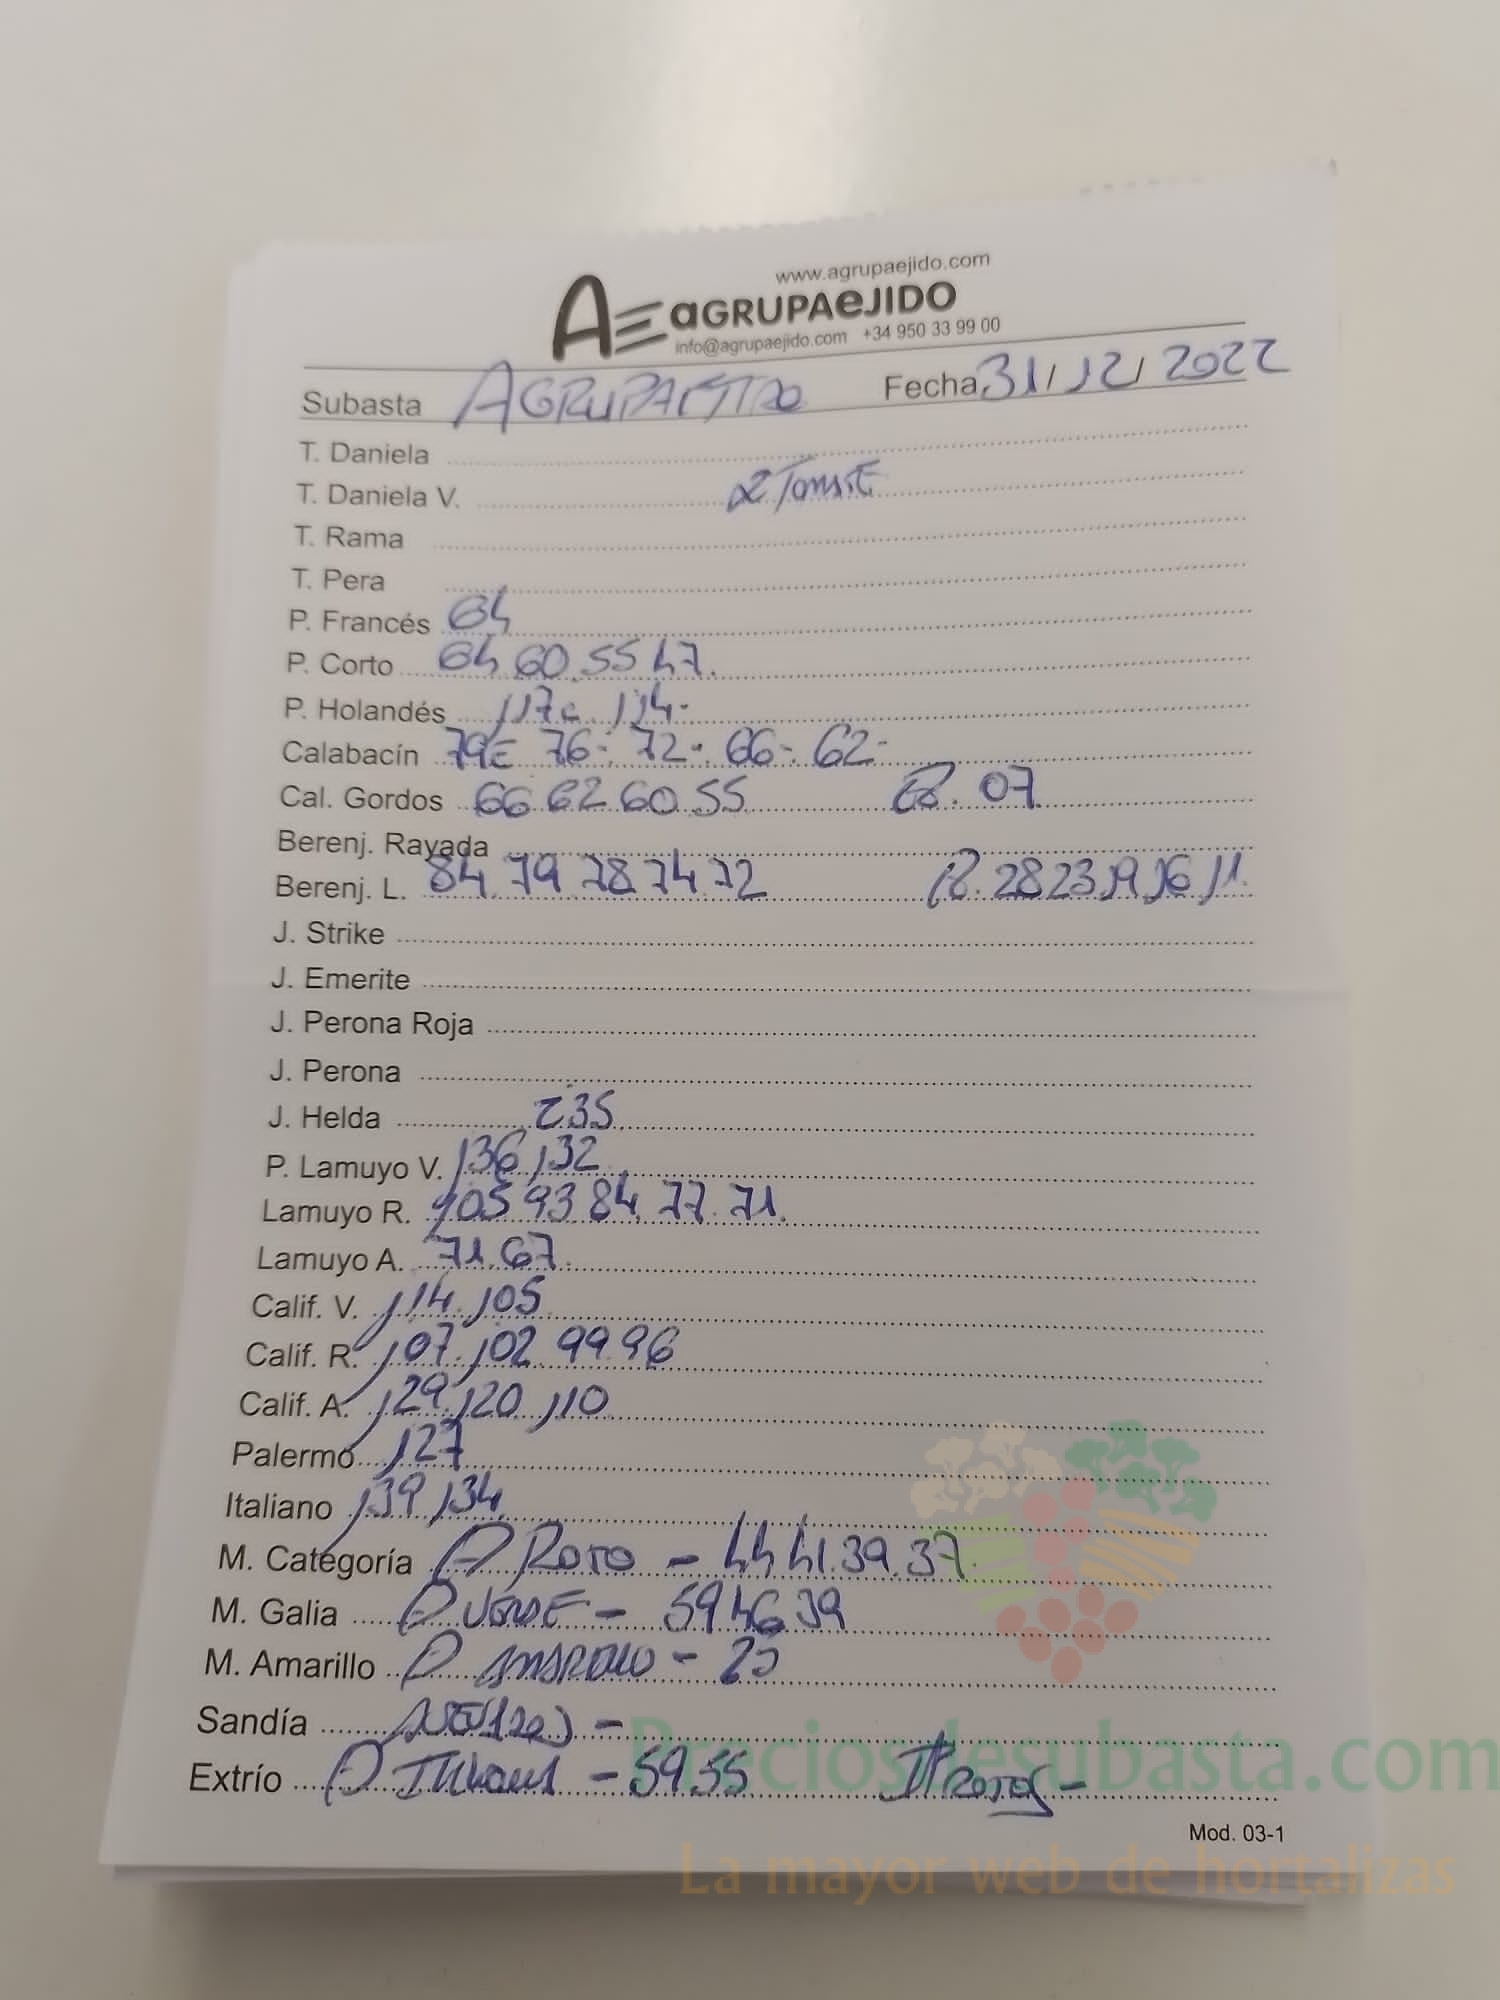 www.agrupaejido.com
AE aGRUPAeJIDO
info@agrupaejido.com +34 950 33 99 00
Subasta AGRUPAEJIDO Fecha 31/12/2022
T. Daniela
T. Daniela V.
T. Rama
T. Pera
P. Francés 64
P. Corto 64 60.55 47.
P. Holandés 117 114-
Calabacín 79 76- 72- 66- 62-
Cal. Gordos 66 62 60.55 07
Berenj. Rayada
Berenj. L. 84.79 78 74 72 28 23 19 16 11.
J. Strike
J. Emerite
J. Perona Roja
J. Perona
J. Helda 235
P. Lamuyo V. 136 132
Lamuyo R. 105 93 84 77.71.
Lamuyo A. 71.67.
Calif. V. 114.105
Calif. R. 107.102.99.96
Calif. A. 129.120 110
Palermo 127
Italiano 139 134
M. Categoría P Rojo - 44 41.39.37.
M. Galia P VERDE - 59 46 39
M. Amarillo P AMARILLO - 25
Sandía -
Extrío P - 59.55 -
Mod. 03-1
Preciosdesubasta.com
La mayor web de hortalizas